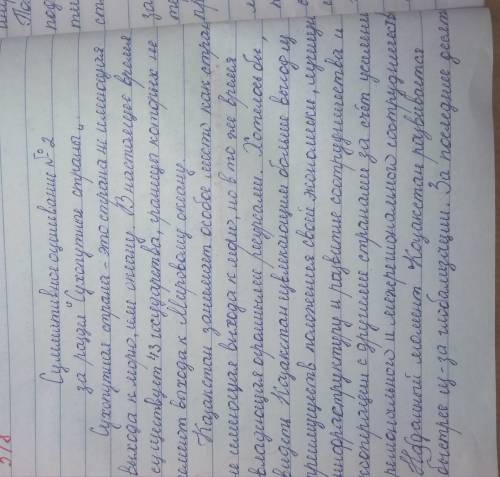 Суммативное оценивание №2
за раздел "Сухопутные страны".
Сухопутная страна - это страна не имеющая
выхода к морю, или океану. В настоящее время
существует 43 государства, границы которых не
имеют выхода к Мировому океану.
Казахстан занимает особое место как страна
не имеющая выхода к морю, но в то же время
владеющая огромными ресурсами. Хотелось бы,
видеть Казахстан извлекающим больше выгод из
преимуществ положения своей экономики, лучшую
инфраструктуру и развитие сотрудничества и
кооперации с другими странами за счёт усиления
региональной и межрегиональной сотрудничества
На данный момент Казахстан развивается
быстрее из-за глобализации. За последние десят
2/8